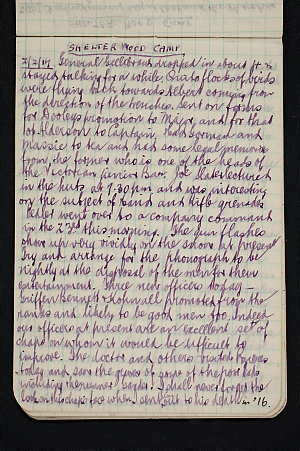 SHELTER WOOD CAMP
2/2/17 General Gellibrand dropped in about it &
stayed talking for a while. Great flocks of birds
were flying back towards Albert coming from
the direction of the trenches. Sent on forms
for Dooleys promotion to Major, and for that
of Alderson to Captain. Had and
Massie to tea and had some legal
from the former who is one of the heads of
the Victorian Junior Bar. Joe Slater lectured
in the huts at 7.30pm and was interesting
on the subject of hand and rifle grenades
went over to a company command
in the 23rd this morning. The gun flashes
show up very vividly on the snow at present
Try and arrange for the phonograph to be
nightly at the disposal of the men for their
entertainment. Three new officers today -
Bennett & promoted from the
ranks and likely to be good men too. Indeed
our officers at present are an excellent set of
chaps on whom it would be difficult to
improve. The doctor and others visited
today and saw the graves of some of the poor lads
including the runner I shall never forget the
look on this chaps face when I sent out to his death in '16.